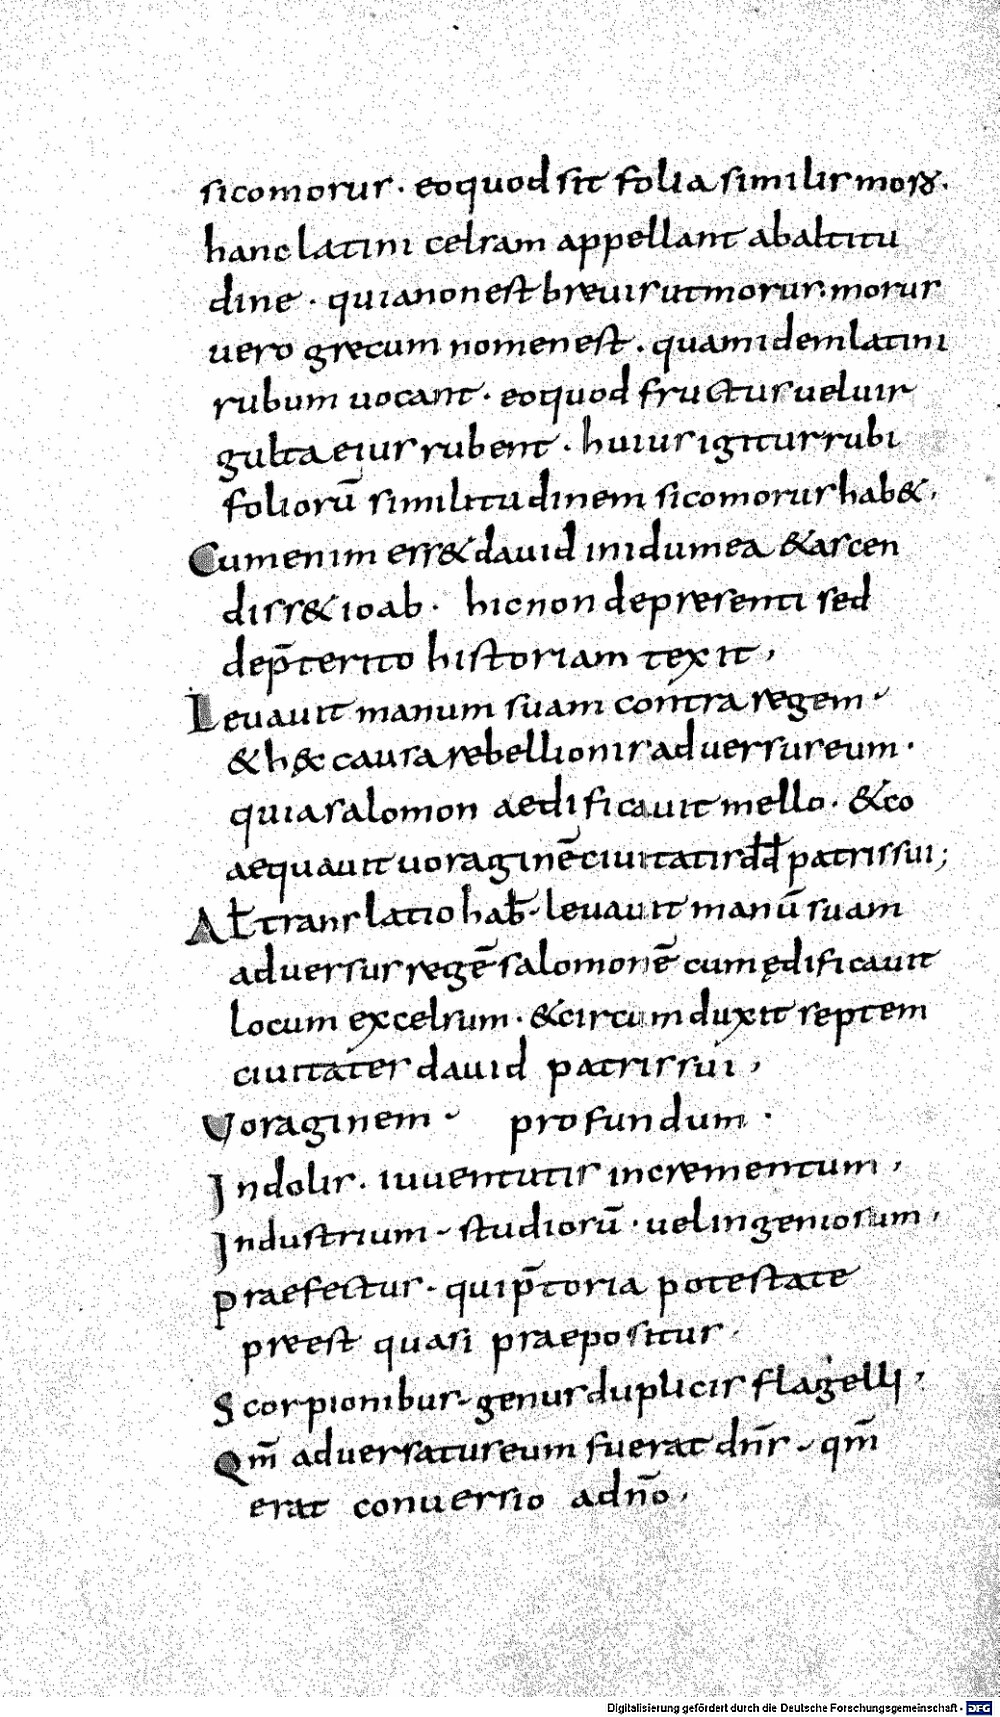 sicomorus · eoquod sit folia similis morꝍ.
hanc latini celsam appellant abaltitu
dine · quianonest brevis utmorus. morus
uero grecum nomenest . quamidemlatini
rubum uocant · eoquod fructus ueluir
gulta eius rubent · huius igitur rubi
foliorū similitudinem sicomorus hab&,
Cumenim ess& dauid inidumea &ascen
diss& ioab · hicnon depresenti sed
dep̄terito historiam texit,
Leuauit manum suam contra regem
&h&c causa rebellionis aduersus eum ·
quia salomon aedificauit mello · &co
aequauit uoraginē ciuitatis dđ patris sui;
Ał translatio hab̄ leuauit manū suam
aduersus regē salomonē cum ędificauit
locum excelsum · &circumduxit septem
ciuitates dauid patris sui,
Uoraginem profundum ·
Indolis · iuuentutis incrementum,
Industrium studiorū · uelingeniosum,
Praefectus · quip̄toria potestate
preest quasi praepositus ·
Scorpionibus genus duplicis flagelli,
Qm̄ aduersatus eum fuerat dn̄s qm̄
erat conuersio adn̄o,
Digitalisierung gefördert durch die Deutsche Forschungsgemeinschaft · DFG